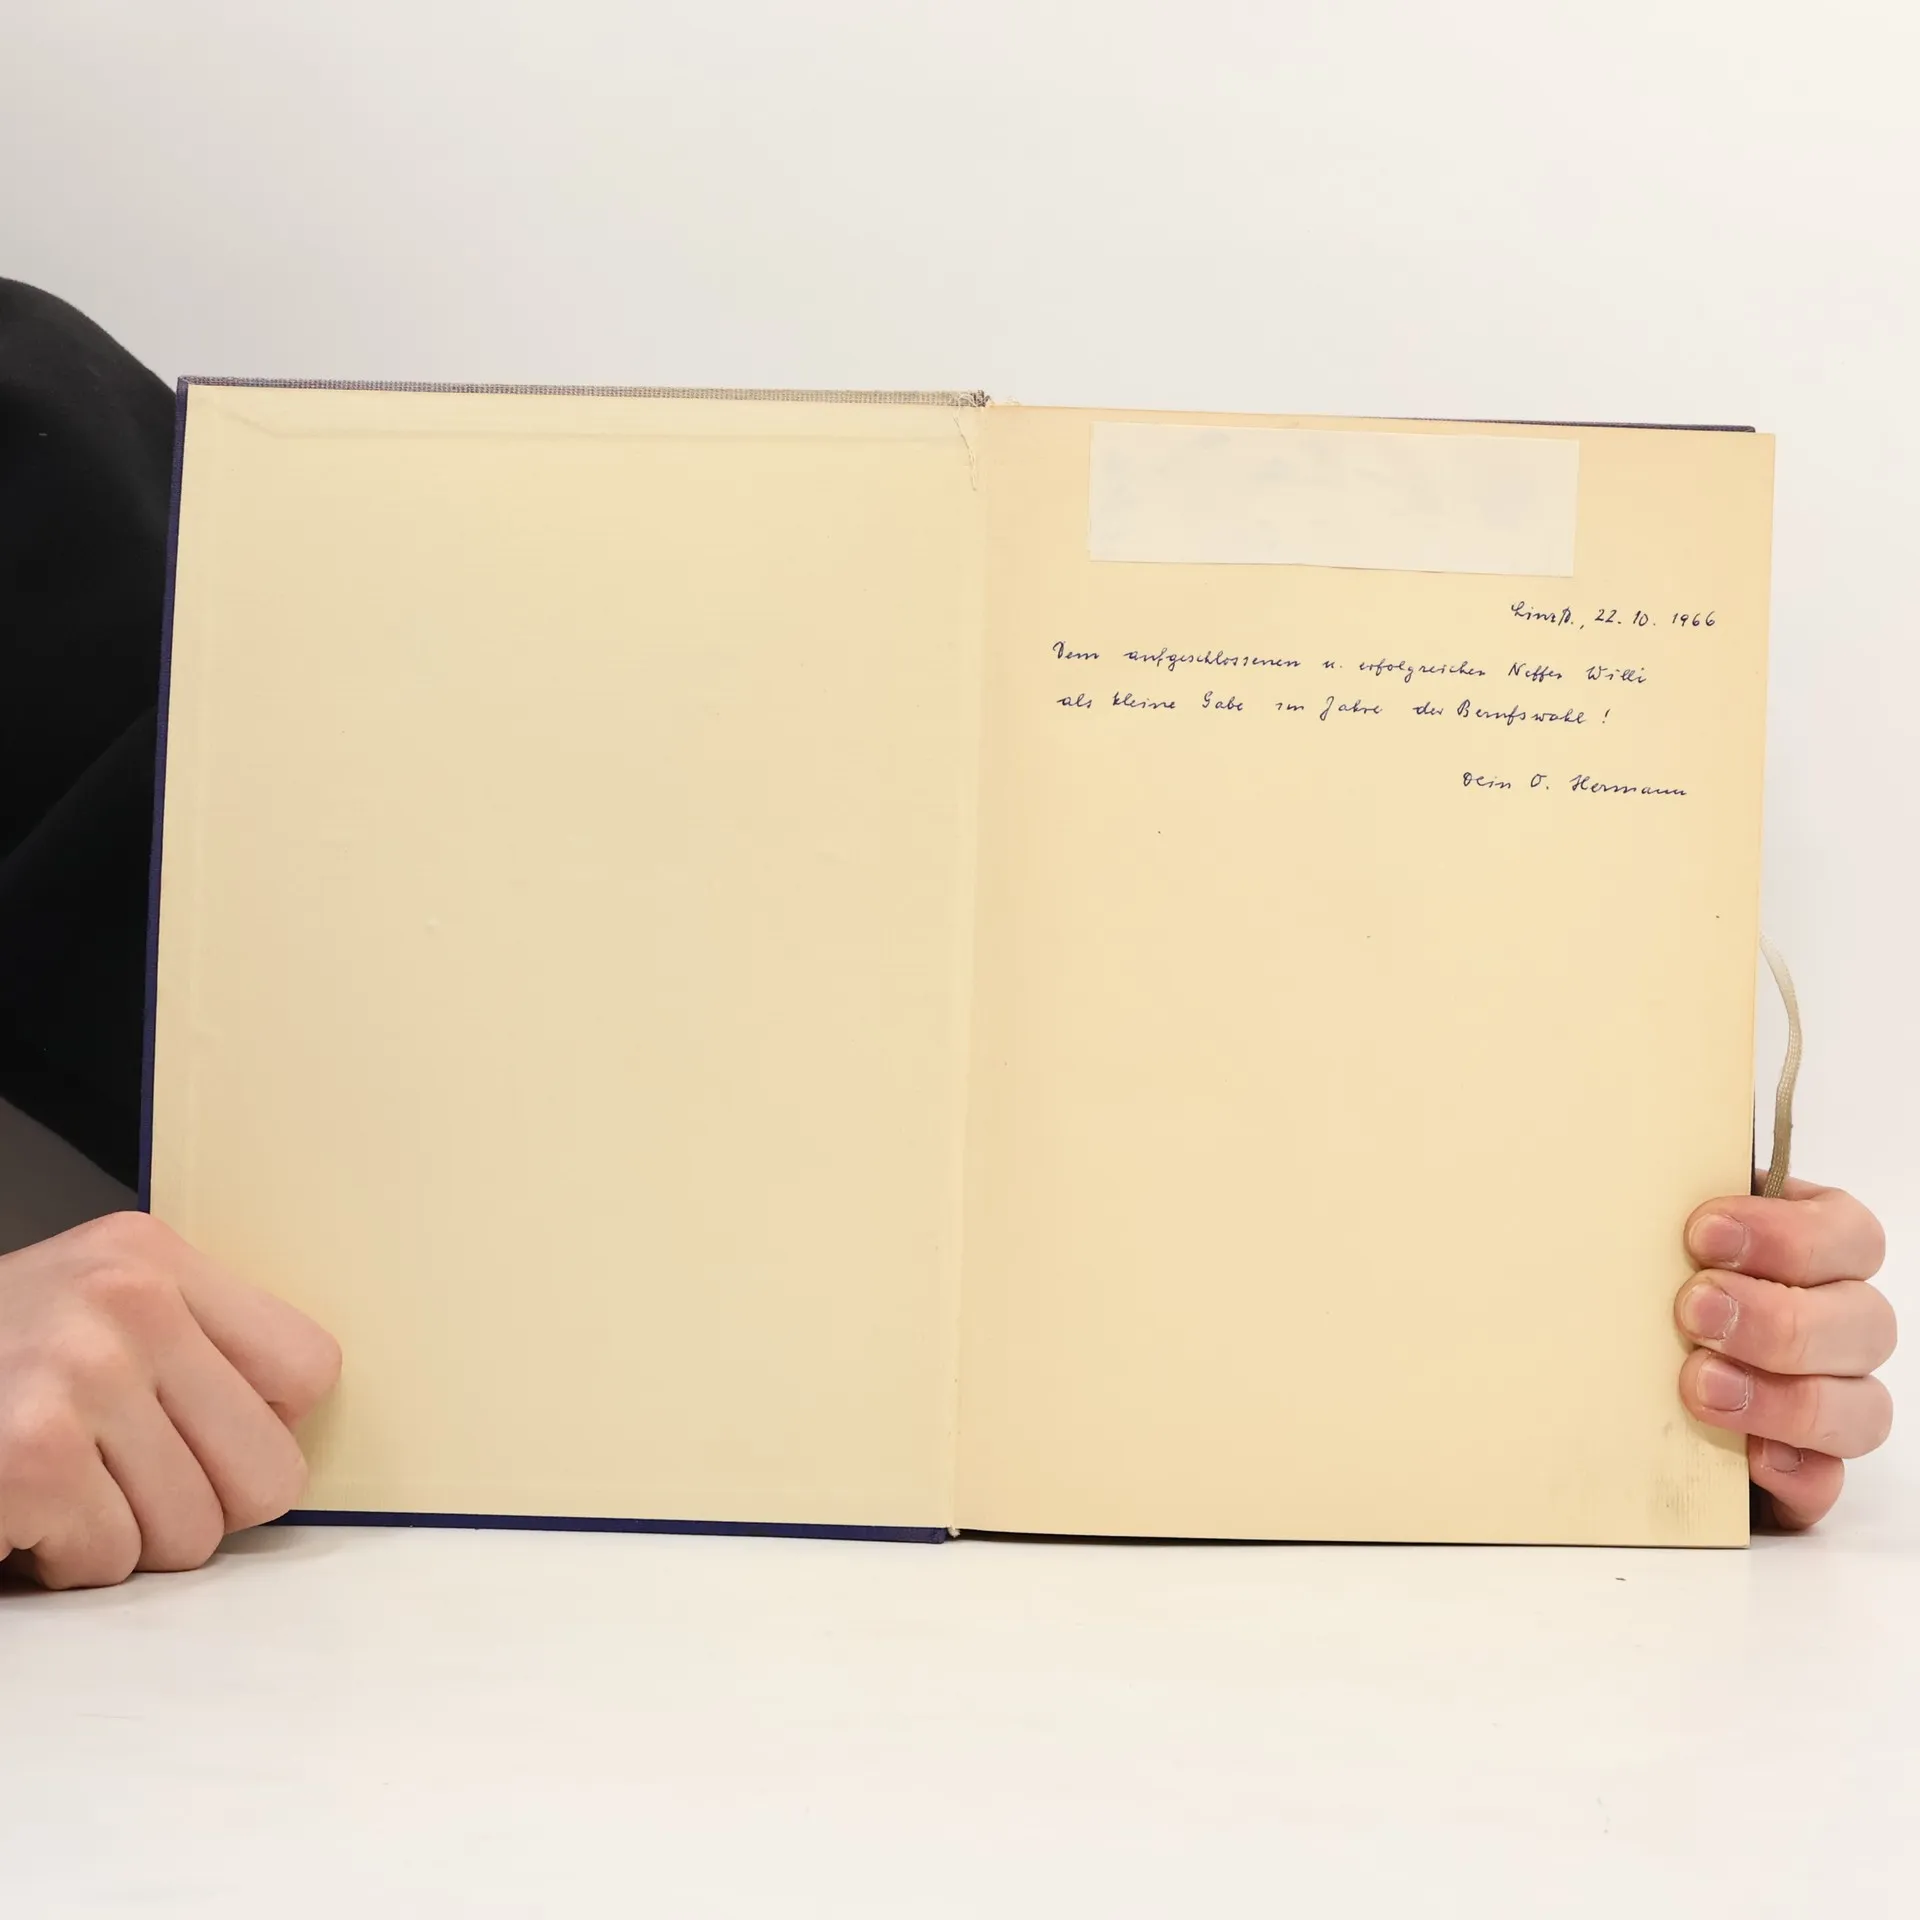 Linz/D., 22. 10. 1966
Dem aufgeschlossenen u. erfolgreichen Neffen Willi
als kleine Gabe im Jahre der Berufswahl !
Dein O. Hermann